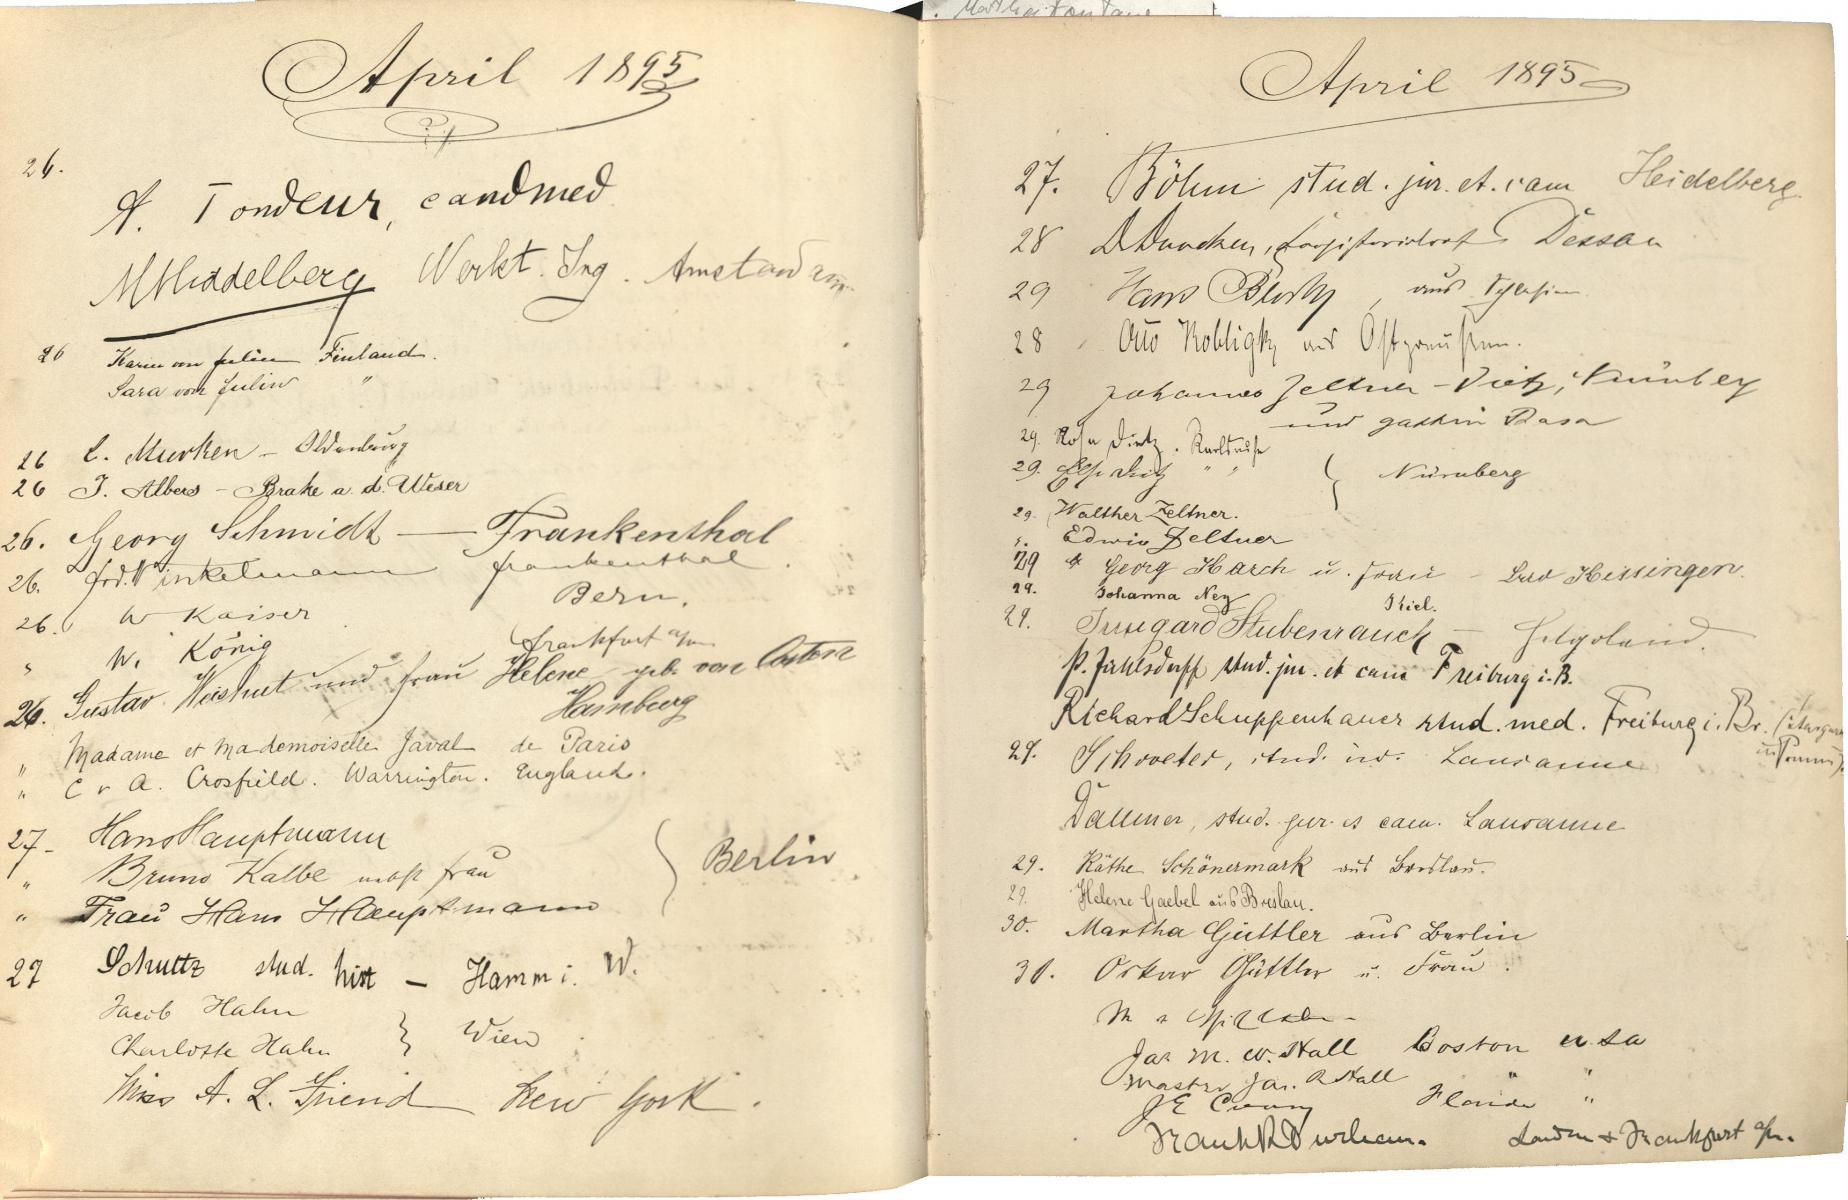 April 1895
26.
A. Tondeur, cand med
M Middelberg Werkt. Ing. Amsterdam
26 Karin von Julin Finland.
Sara von Julin "
26 L. Murken - Oldenburg
26 J. Albers - Brake a. d. Weser
26. Georg Schmidt — Frankenthal
26. Frd. Winkelmann Frankenthal.
26. W Kaiser Bern.
" W. König Frankfurt a/m
26. Gustav und Frau Helene geb. von
Hamburg
" Madame et Mademoiselle Javal de Paris
" C & A. Crosfield. Warrington. England.
27- Hans Hauptmann
" Bruno Kalbe nebst Frau } Berlin
" Frau Hans Hauptmann
27 Schultz stud. hist - Hamm i. W.
Jacob Hahn
Charlotte Hahn } Wien
Miss A. L. Friend New York.
April 1895
27. Böhm stud. jur. et. cam Heidelberg.
28 Dessau
29 Hans aus
28 Otto Kobligk aus Ostpreußen.
29 Johannes Zeltner - Dietz, Nürnberg
und Rosa
29. Rosa Dietz. Karlsruhe
29. Dietz " " } Nürnberg
29. Walther Zeltner.
Edwin Zeltner
29 Georg Harch u. Frau - Bad Kissingen.
29. Johanna Ney Kiel.
29. Irmgard Stubenrauch - Helgoland.
stud. jur. et cam Freiburg i. B.
Richard Schuppenhauer stud. med. Freiburg i. Br. (Stargard
in Pomm.)
29. stud. Lausanne
Dallmer, stud. jur. et cam. Lausanne
29. Käthe Schönermark aus Breslau.
29. Helene Gaebel aus Breslau.
30. Martha Güttler aus Berlin
30. Oskar Güttler u. Frau.
M
Jas M. W. Hall Boston U S a
Master Jas. A Hall " "
J E Florida "
Frank London & Frankfurt a/m.